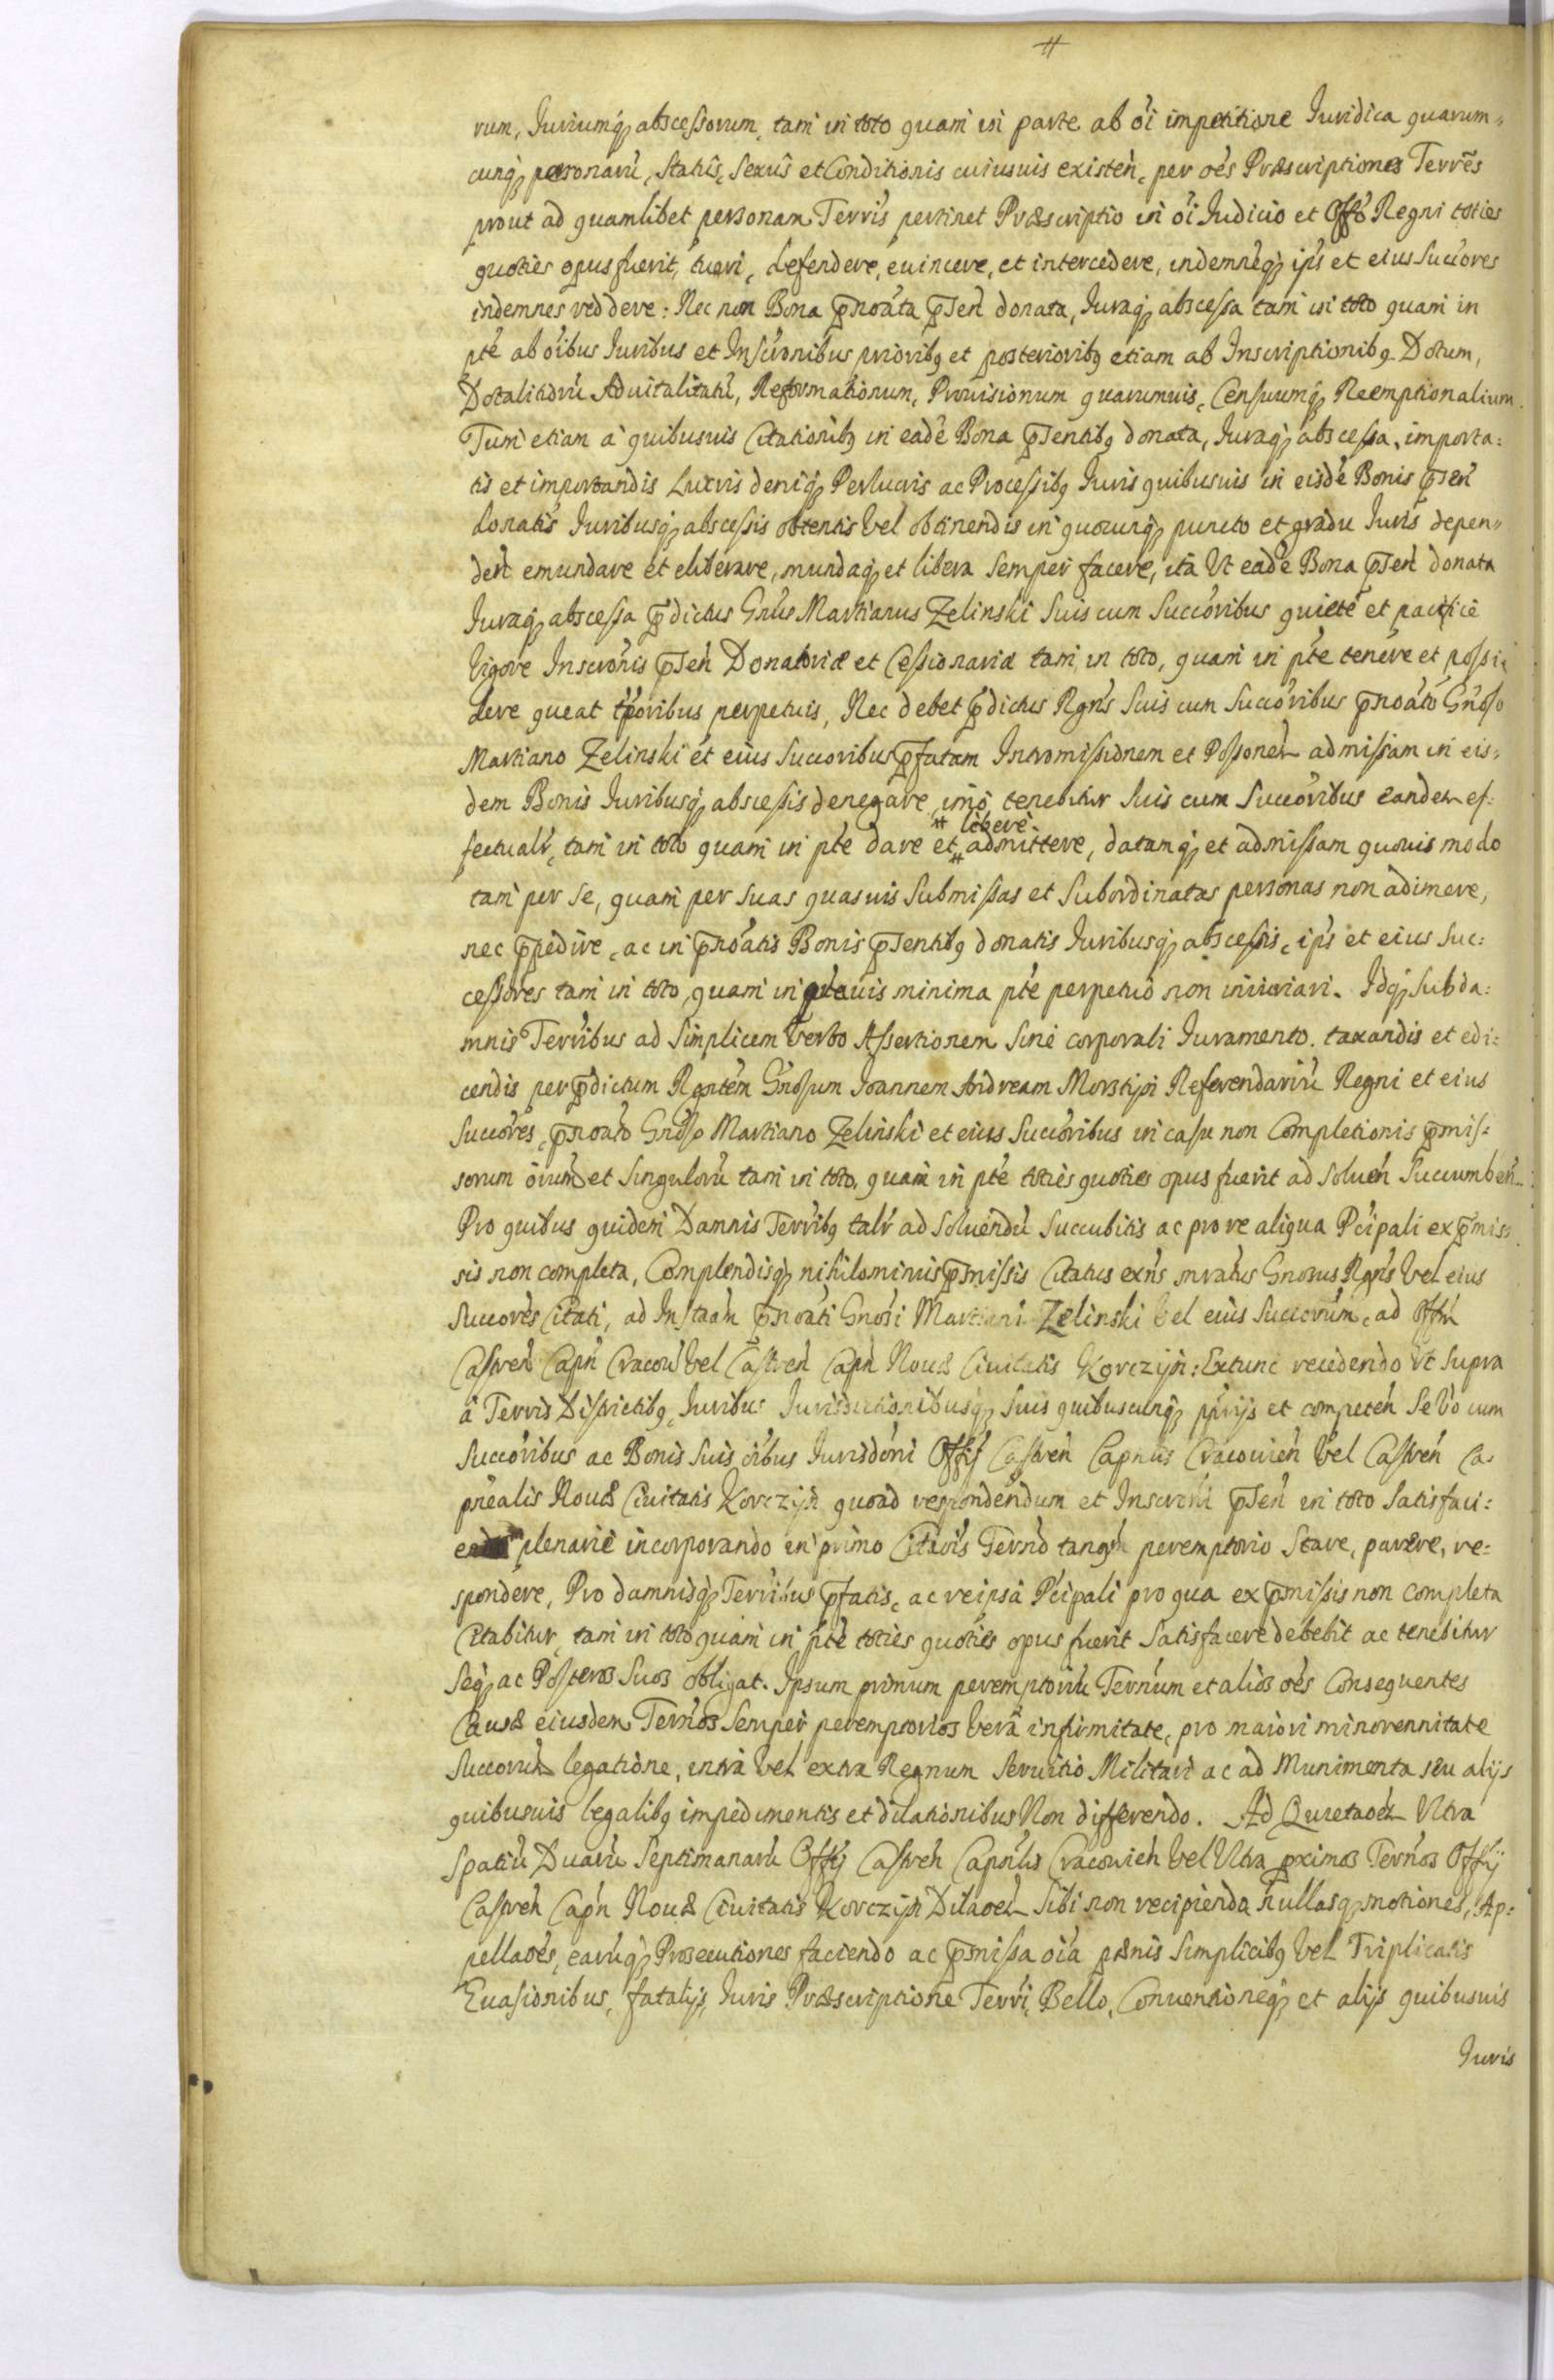 #
rum, Juriumq́ꝫ abscessorum, tam in toto quam in parte ab oi impetitione Juridica quarum„
cunq́ꝫ personarũ, Status, Sexus et Conditionis cuiusuis existeñ, per oẽs Præscriptiones Terrẽs
prout ad quamlibet personam Terrĩs pertinet Præscriptio in oĩ Judicio et Offõ Regni toties
quoties opus fuerit, tueri, defendere, euincere, et intercedere, indemnẽq́ꝫ ip̃s et eius Succõres
indemnes reddere: Nec non Bona p̃noãta p̃señ donata, Juraq́ꝫ abscessa tam in toto quam in
pt̃e ab oĩbus Juribus et Inscrõnibus prioribꝫ et posterioribꝫ etiam ab Inscriptionibꝫ Dotum,
Dotalitiorũ Aduitalitatũ, Reformationum, Prouisionum quarumuis, Censuumq́ꝫ Reemptionalium.
Tum etiam a quibusuis Citationibꝫ in eadẽ Bona p̃sentibꝫ donata, Juraq́ꝫ abscessa, importa:
tis et importandis Lucris deniq́ꝫ Perlucris ac Processibꝫ Juris quibusuis in eisdẽ Bonis p̃señ
donatis Juribusq́ꝫ abscessis obtentis vel obtinendis in quocunq́ꝫ puncto et gradu Juris depen„
deñ emundare et eliberare, mundaq́ꝫ et libera semper facere, ita Vt eadẽ Bona p̃señ donata
Juraq́ꝫ abscessa p̃dictus Gñus Martianus Zelinski Suis cum Succõribus quietè et pacificè
Vigore Inscrõnis p̃señ Donatoriæ et Cessionariæ tam in toto, quam in pt̃e tenere et possi:
dere queat tp̃oribus perpetuis, Nec debet p̃dictus Rgñs Suis cum Succõribus p̃noãto Gñoso
Martiano Zelinski et eius Succoribus p̃fatam Intromissionem et Possoneḿ admissam in eis:
dem Bonis Juribusq́ꝫ abscessis denegare, imò tenebitur Suis cum Succõribus eandem ef:
# liberè.
fectualr̃, tam in toto quam in pt̃e dare et # admittere, datamq́ꝫ et admissam quouis modo
tam per se, quam per suas quasuis Submissas et Subordinatas personas non adimere,
nec p̃pedire, ac in p̃noãtis Bonis p̃sentibꝫ donatis Juribusq́ꝫ abscessis, ip̃s et eius Suc:
cessores tam in toto, quam in quauis minima pt̃e perpetuò non iniuriari. Idq́ꝫ Sub da:
mnis Terrĩbus ad Simplicem Verbo Assertionem Sine corporali Juramento taxandis et edi:
cendis per p̃dictum Rgñtem Gñosum Joannem Andream Morstijn Referendariũ Regni et eius
Succõres, p̃noãto Gñoso Martiano Zelinski et eius Succõribus in casu non Completionis p̃mis:
sorum oĩum et Singulorũ tam in toto, quam in pt̃e toties quoties opus fuerit ad Solueñ Succumbeñ.
Pro quibus quidem Damnis Terrĩbꝫ talr̃ ad Soluendũ Succubitis ac pro re aliqua Pc̃ipali ex p̃mis:
sis non completa, Complendisq́ꝫ nihilominus p̃missis Citatus exñs Gnosus Rgñs Vel eius
Succõres Citati, ad Instañ p̃noãti Gnosi Martiani Zelinski Vel eius Succorum, ad Offm̃
Castreñ Capñ Cracoũ Vel Castreñ Capñ Nouæ Ciuitatis Korczijn: Extunc recedendo Vt supra
à Terrĩs Districtibꝫ, Juribus Jurisdictionibusq́ꝫ Suis quibuscunq́ꝫ pp̃rijs et competeñ Se Vo cum
Succõribus ac Bonis Suis oĩbus Jurisdõni Offij Castreñ Capnlis Cracouieñ Vel Castreñ Ca:
pnealis Nouæ Ciuitatis Korczijn quoad respondendum et Inscroni p̃señ in toto Satisfaci:
plenariè incorporando in primo Citãõis Termo tanqm̃ peremptorio Stare, parere, re:
spondere, Pro damnisq́ꝫ Terrĩbus p̃fatis, ac re ipsa Pc̃ipali pro qua ex p̃missis non completa
Citabitur, tam in toto quam in pt̃e toties quoties opus fuerit Satisfacere debebit ac tenebitur
Seq́ꝫ ac Posteros Suos obligat. Ipsum primum peremptoriũ Terñum et alios oẽs Consequentes
Causæ eiusdem Terños Semper peremptorios Verâ infirmitate, pro maiori minorennitate
Succorum legatione, intra Vel extra Regnum Seruitio Militari ac ad Munimenta seu alijs
quibusuis legalibꝫ impedimentis et dilationibus Non differendo. Ad Quietaõeḿ Vltra
Spatiũ Duarũ Septimanarũ Offij Castreñ Capnlis Cracouieñ Vel Vltra p̃ximos Terños Offij
Castreñ Capñ Nouæ Ciuitatis Korczijn Dilaõeḿ Sibi non recipiendo nullasq́ꝫ motiones, Ap:
pellaões, earũq́ꝫ Prosecutiones faciendo ac p̃missa oĩa pœnis Simplicibꝫ Vel Triplicatis
Euasionibus, fatalijs, Juris Præscriptione Terrĩ, Bello, Conuentioneq́ꝫ et alijs quibusuis
Juris